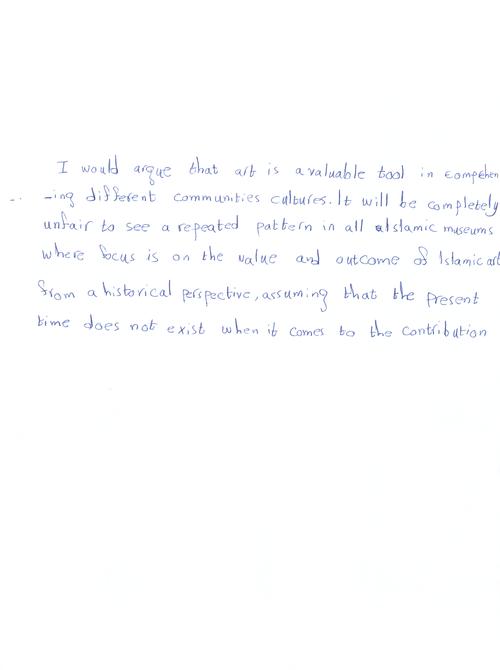 I would argue that art is a valuable tool in compehen
-ing different communities cultures. It will be completely
unfair to see a repeated pattern in all Islamic museums
where focus is on the value and outcome of Islamic art
from a historical perspective, assuming that the present
time does not exist when it comes to the contribution